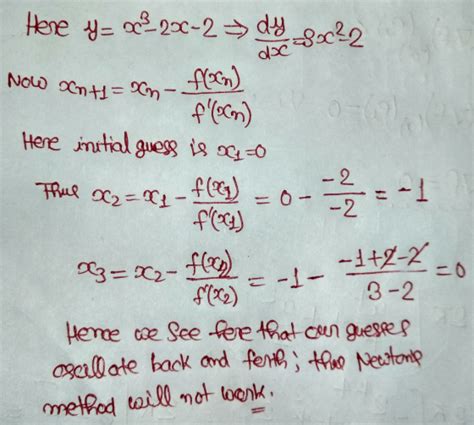 Here y = x³-2x-2 ⇒ dy/dx = 3x²-2
Now xn+1 = xn - f(xn)/f'(xn)
Here initial guess is x1=0
Thus x2 = x1 - f(x1)/f'(x1) = 0 - -2/-2 = -1
x3 = x2 - f(x2)/f'(x2) = -1 - -1+2-2/3-2 = 0
Hence we see here that our guesses
oscillate back and forth; thus Newtons
method will not work.